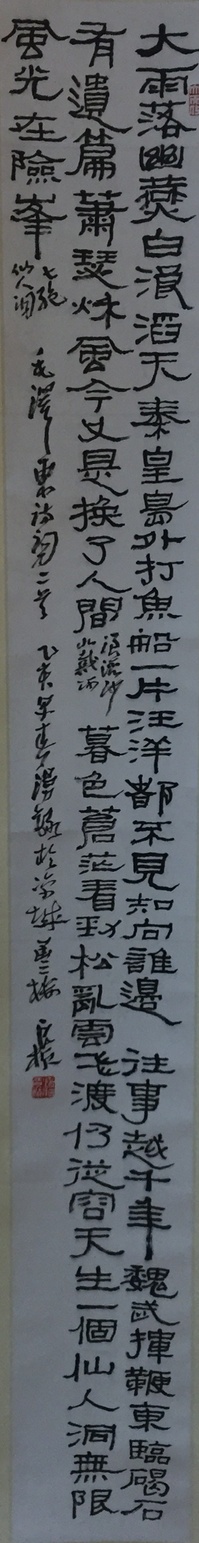 大雨落幽薊白浪滔天秦皇島外打魚船一片汪洋都不見知向誰邊 往事越千年魏武揮鞭東臨碣石
有遺篇蕭瑟秋風今又是換了人間 浪淘沙 北戴河 暮色蒼茫看劲松亂雲飛渡仍從容天生一個仙人洞無限
風光在險峯 七絕 仙人洞 毛澤東詩詞二首 乙未年春